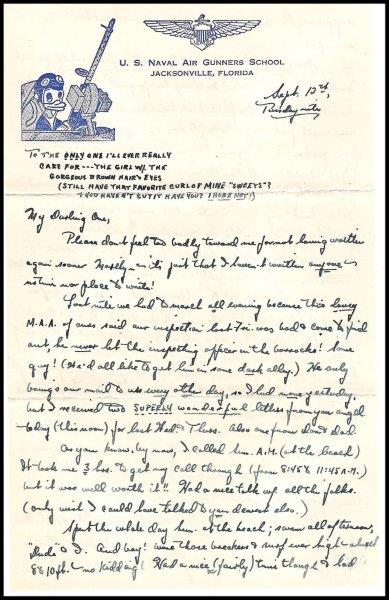 U. S. NAVAL AIR GUNNERS SCHOOL
JACKSONVILLE, FLORIDA
Sept. 12th,
Tuesday nite,
TO THE ONLY ONE I'LL EVER REALLY
CARE FOR --- THE GIRL W/ THE
GORGEOUS BROWN HAIR & EYES
(STILL HAVE THAT FAVORITE CURL OF MINE "SWEETS"?
YOU HAVEN'T CUT IT HAVE YOU? I HOPE NOT!)
My Darling One,
Please don't feel too badly toward me for not having written
again sooner. Honestly - it's just that I haven't written anyone -
no time nor place to write!
Last nite we had to march all evening because this lousy
M.A.A. of ours said our inspection last Fri. was bad & come to find
out, he never let the inspecting officer in the barracks! Some
guy! (We'd all like to get him in some dark alley.) He only
brings our mail to us every other day, so I had none yesterday,
but I received two SUPERLY wonderful letters from you angel
today (this noon), for last Wed. & Thurs. Also one from don & dad
As you know, by now, I called Sun. A.M. (at the beach)
It took me 3 hrs. to get my call through (from 8:45 & 11:45 A.M.)
but it was well worth it!! Had a nice talk w/ all the folks.
(only wish I could have talked to you dearest also.)
Spent the whole day Sun. at the beach; swam all afternoon,
"Dude" & I. And boy! were those breakers & surf ever high - about
8 & 10 ft. - no kidding! Had a nice (fairly) time though & had